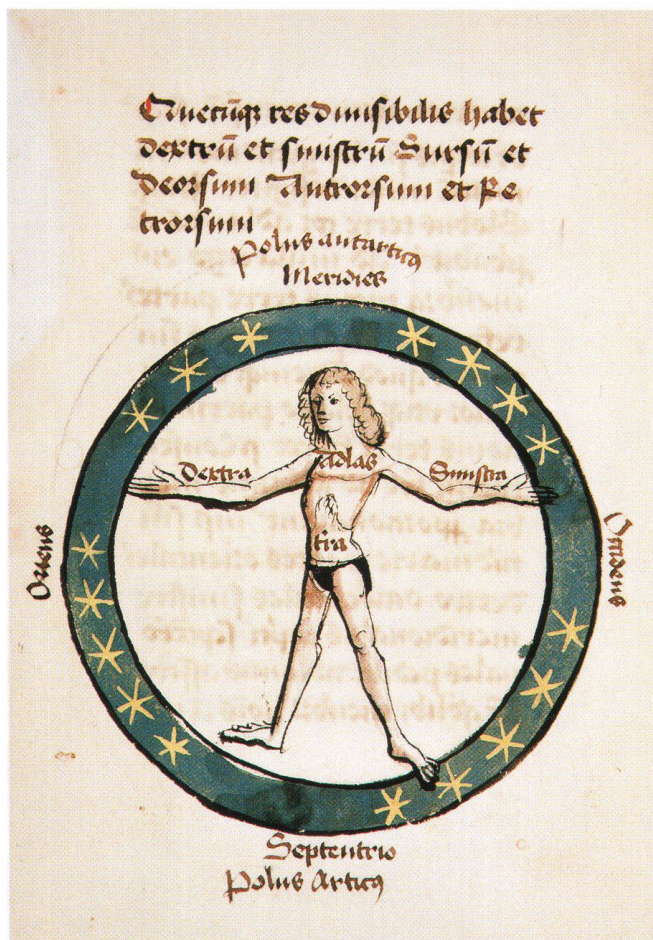 Quecūqȝ res diuisibilis habet
dextrū et sinistrū Sursū et
deorsum Antrorsum et Re
trorsum
Polus antarticꝯ
Meridies
Dextra
adlas
Sinistra
Oriens
t̄ra
Occidens
Septentrio
Polus Articꝯ